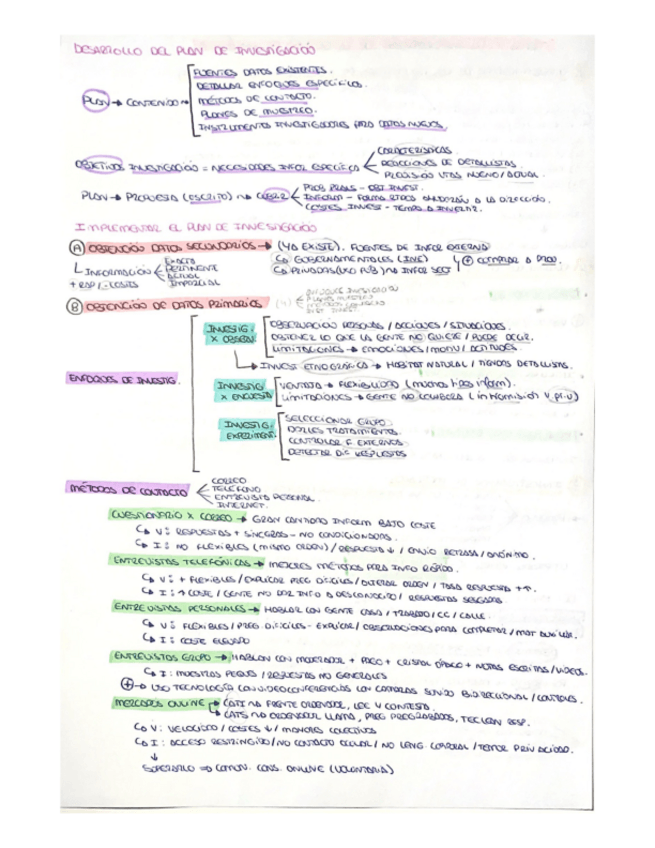 DESARROLLO DEL PLAN DE INVESTIGACIÓN
FUENTES DATOS EXISTENTES.
DETALLAR ENFOQUES ESPECÍFICOS.
PLAN → CONTENIDO
MÉTODOS DE CONTACTO.
PLANES DE MUESTREO.
INSTRUMENTOS INVESTIGADORES PARA DATOS NUEVOS
CARACTERÍSTICAS.
OBJETIVOS INVESTIGACIÓN = NECESIDADES INFOR ESPECÍFICA
REACCIONES DE DETALLISTAS.
PREVISIÓN VTAS NUEVO / ACTUAL
PROB PRALS - OBJ INVEST.
PLAN → PROPUESTA (ESCRITO)
INFORM - FORMA AYUDARÁN A LA DIRECCIÓN.
COSTES INVEST - TEMPO
IMPLEMENTAR EL PLAN DE INVESTIGACIÓN
A OBTENCIÓN DATOS SECUNDARIOS → (YA EXISTE). FUENTES DE INFOR EXTERNA
GUBERNAMENTALES (INE)
INFORMACIÓN
EXACTA
PERTINENTE
ACTUAL
IMPARCIAL
+ RAP / - COSTES
B OBTENCIÓN DE DATOS PRIMARIOS (4)
INVESTIG X OBSERV.
OBSERVACIÓN PERSONAS / ACCIONES / SITUACIONES.
OBTENER LO QUE LA GENTE NO QUIERE / PUEDE DECIR.
LIMITACIONES → EMOCIONES / MOTIV / ACTITUDES
INVEST ETNOGRÁFICA → HÁBITAT NATURAL / DETALLISTA.
ENFOQUES DE INVESTIG.
INVESTIG X ENCUESTA
VENTAJA → FLEXIBILIDAD (muchos tipos inform).
LIMITACIONES → GENTE NO COLABORA
INVESTIG. EXPERIMENT.
SELECCIONAR GRUPO.
DARLES TRATAMIENTOS.
CONTROLAR F. EXTERNOS.
DETECTAR DIF RESPUESTAS
MÉTODOS DE CONTACTO
CORREO
TELÉFONO
ENTREVISTA PERSONAL.
INTERNET.
CUESTIONARIO X CORREO → GRAN CANTIDAD INFORM BAJO COSTE
V: RESPUESTAS + SINCERAS - NO CONDICIONADAS.
I: NO FLEXIBLES (MISMO ORDEN) / RESPUESTA ↓ / ENVÍO RETRASA / ANÓNIMO.
ENTREVISTAS TELEFÓNICAS → MEJORES MÉTODOS PARA INFO RÁPIDO.
V: + FLEXIBLES / EXPLICAR PREG DIFÍCILES / ALTERAR ORDEN / TASA RESPUESTA ++.
I: ↑ COSTE / GENTE NO DAR INFO A DESCONOCIDO / RESPUESTAS SESGADAS
ENTREVISTAS PERSONALES → HABLAR CON GENTE CASA / TRABAJO / CC / CALLE.
V: FLEXIBLES / PREG DIFÍCILES - EXPLICAR / OBSERVACIONES PARA COMPLETAR / MAT AUXILIAR.
I: COSTE ELEVADO
ENTREVISTAS GRUPO → HABLAN CON MODERADOR + PREG + CRISTAL OPACO + NOTAS ESCRITAS / VIDEOS.
I: MUESTRAS PEQUES / RESPUESTAS NO GENERALES
+ → USO TECNOLOGÍA CON VIDEOCONFERENCIAS CON CÁMARAS SONIDO BIDIRECCIONAL / CONTROLES.
MERCADOS ONLINE
CATI FRENTE ORDENADOR, LEE Y CONTESTA.
CATS ORDENADOR LLAMA, PREG PREGRABADAS, TECLEAN RESP.
V: VELOCIDAD / COSTES ↓ / MAYORES COLECTIVOS
I: ACCESO RESTRINGIDO / NO CONTACTO OCULAR / NO LENG CORPORAL / TEMOR PRIVACIDAD.
↓
SUPERARLO ⇒ COMUN. CONS. ONLINE (VOLUNTARIA)